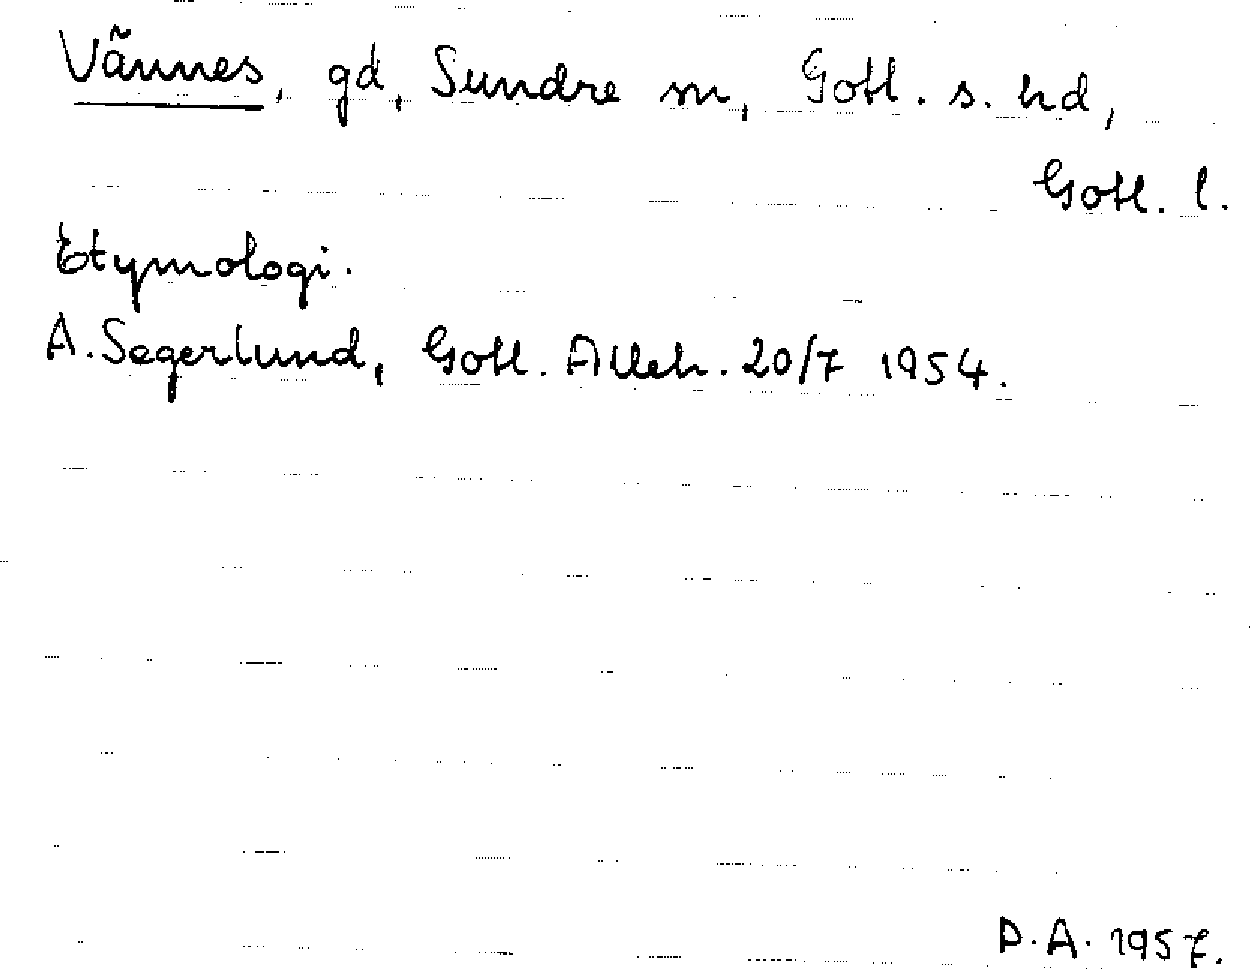 Vännes, gd, Sundre sn, Gotl. s. hd,
Gotl. l.
Etymologi.
A. Segerlund, Gotl. Alleh. 20/7 1954.
D.A. 1957.